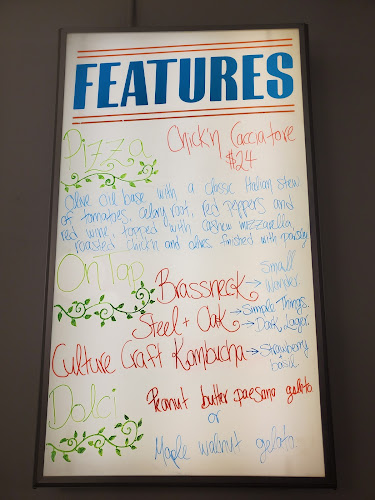 FEATURES
Pizza Chick'n Cacciatore
$24
Olive oil base with a classic Italian stew
of tomatoes, celery root, red peppers and
red wine topped with cashew mozzarella,
roasted chick'n and olives finished with parsley
On Tap
Brassneck → Small Wonder.
Steel + Oak → Simple Things.
→ Dark Lager.
Culture Craft Kombucha → Strawberry basil
Dolci Peanut butter paesano gelato
or
Maple walnut gelato.